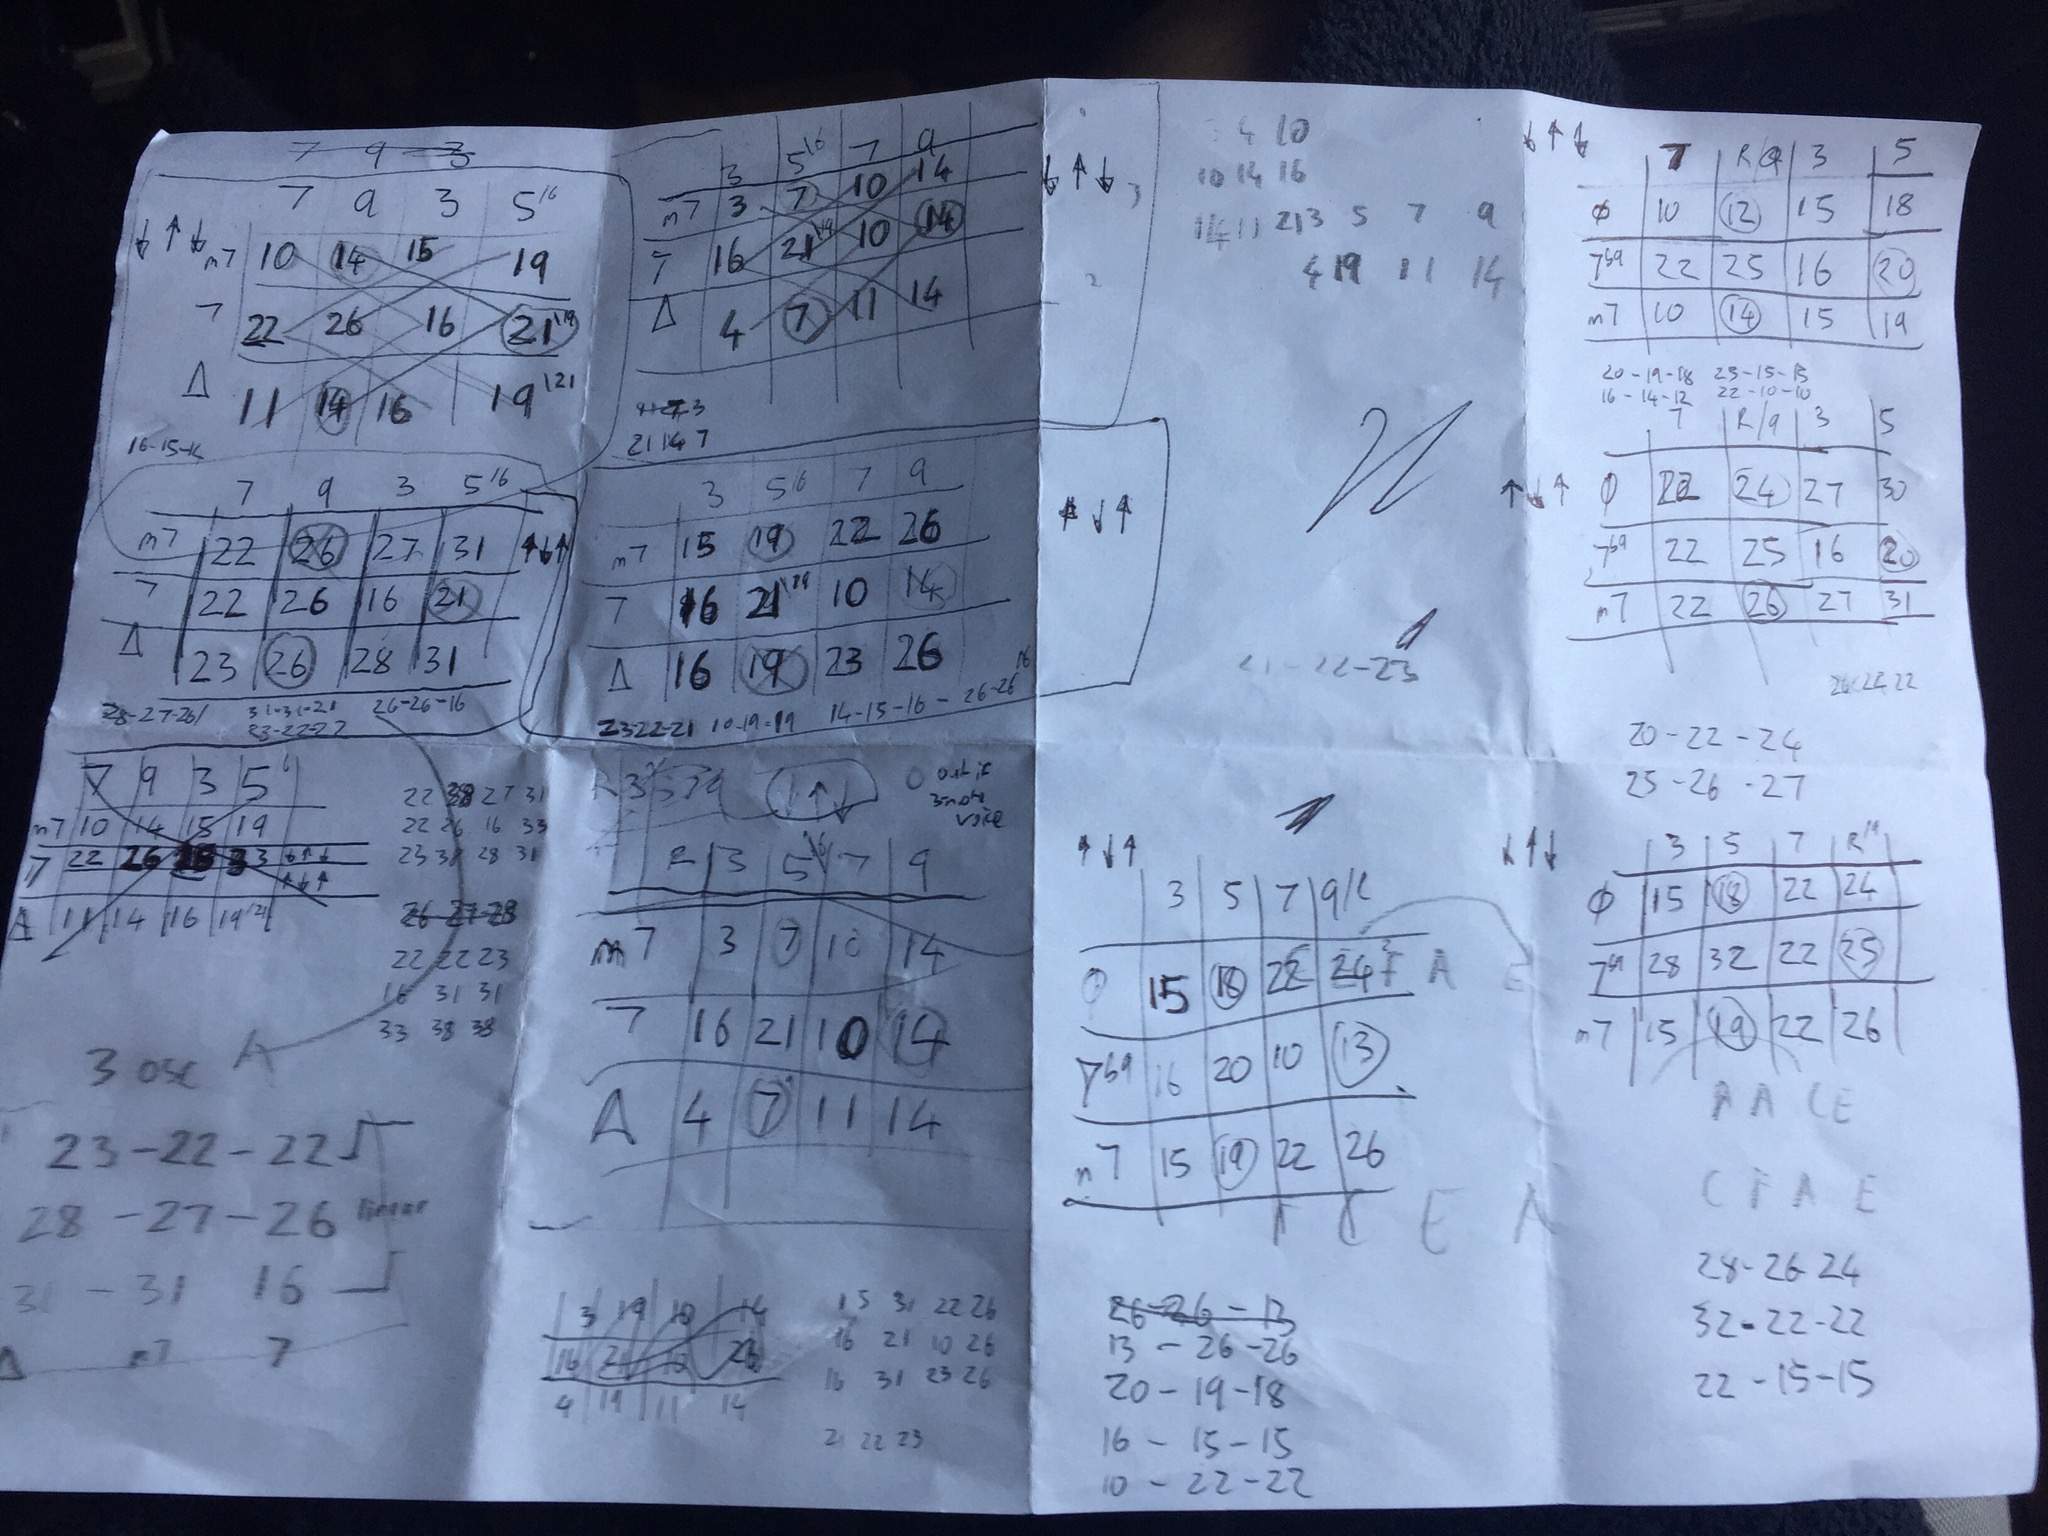 7 9 3
7 9 3 5 16
↓ ↑ ↓
m7 10 14 15 19
7 22 26 16 21 19
Δ 11 14 16 19 21
16-15-14
7 9 3 5 16
m7 22 26 27 31 ↑↓↑
7 22 26 16 21
Δ 23 26 28 31
28-27-26 31-31-21 26-26-16
23-22-22
3 5 16 7 9
m7 3 7 10 14 ↓↑↓
7 16 21 19 10 14
Δ 4 7 11 14
21 14 7
3 5 16 7 9
m7 15 19 22 26 ↓↑
7 16 21 19 10 14
Δ 16 19 23 26
23-22-21 10-19-19 14-15-16 - 26-26 16
4 10
10 14 16
14 11 21 3 5 7 9
4 19 11 14
21-22-23
↓↑↓
7 R/9 3 5
ø 10 12 15 18
7b9 22 25 16 20
m7 10 14 15 19
20-19-18 25-15-15
16-14-12 22-10-10
7 R/9 3 5
↑↓↑
ø 22 24 27 30
7b9 22 25 16 20
m7 22 26 27 31
26 24 22
20-22-24
25-26-27
7 9 3 5 6
m7 10 14 15 19
7 22 26 33 ↓↑↓
↑↓↑
Δ 11 14 16 19 21
22 38 27 31
22 26 16 33
23 38 28 31
26 27 28
22 22 23
16 31 31
33 38 38
3 osc A
23-22-22
28-27-26 linear
31-31 16
Δ m7 7
↓↑↓
out if
3 note
voice
R 3 5 16 7 9
m7 3 7 10 14
7 16 21 10 14
Δ 4 7 11 14
3 19 10 14
16 21
4 19 11 14
15 31 22 26
16 21 10 26
16 31 23 26
21 22 23
↑↓↑
3 5 7 9/R
ø 15 18 22 24 F A E
7b9 16 20 10 13
m7 15 19 22 26
A C E A
26-26-13
13-26-26
20-19-18
16-15-15
10-22-22
↓↑↓
3 5 7 R/9
ø 15 18 22 24
7b9 28 32 22 25
m7 15 19 22 26
A A C E
C F A E
28-26-24
32-22-22
22-15-15